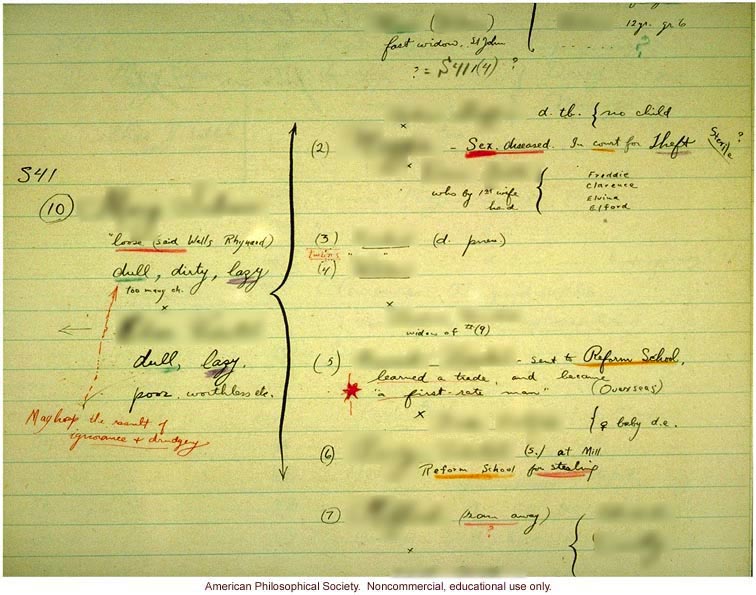 12 gr. gr 6
fast widow. St John
?
? = S 411(4) ?
d. tb. { no child
(2)
- Sex. diseased. In court for Theft
Sterile ?
S41
(10)
who by 1st wife had
Freddie
Clarence
Elvina
Elford
"loose (said Walls Rhynard)
(3)
(d. pneu.)
twins " "
(4)
dull, dirty, lazy
too many ch.
x
widow of II (9)
dull, lazy,
poor, worthless etc.
(5)
- sent to Reform School,
learned a trade, and became
"a first-rate man" (Overseas)
Mayhap the result of
ignorance + drudgery
x
{ ♀ baby d.e.
(6)
(s.) at Mill
Reform School for stealing
(7)
(ran away)
?
x
American Philosophical Society. Noncommercial, educational use only.